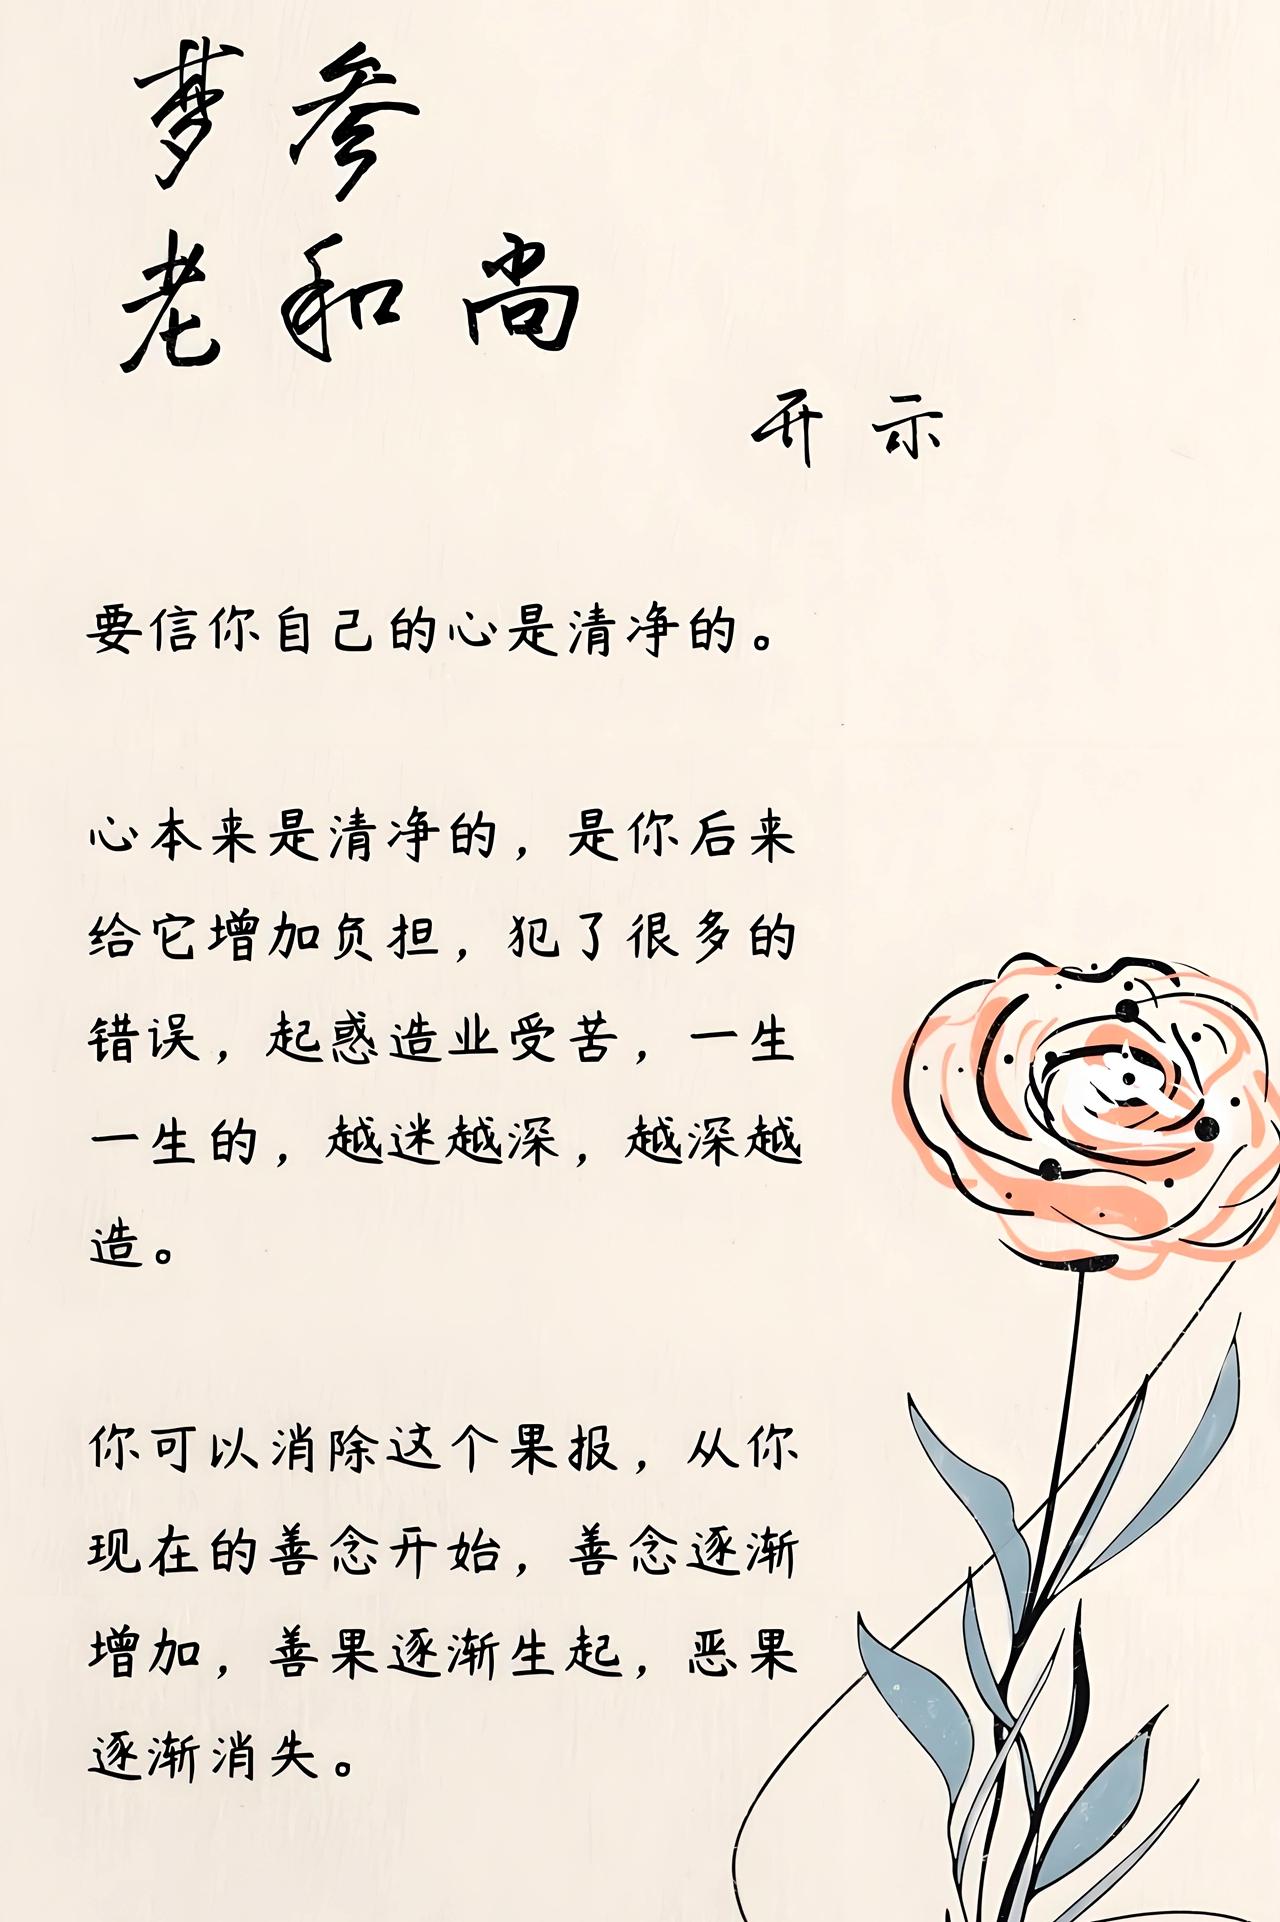 梦参
老和尚
开示
要信你自己的心是清净的。
心本来是清净的，是你后来
给它增加负担，犯了很多的
错误，起惑造业受苦，一生
一生的，越迷越深，越深越
造。
你可以消除这个果报，从你
现在的善念开始，善念逐渐
增加，善果逐渐生起，恶果
逐渐消失。